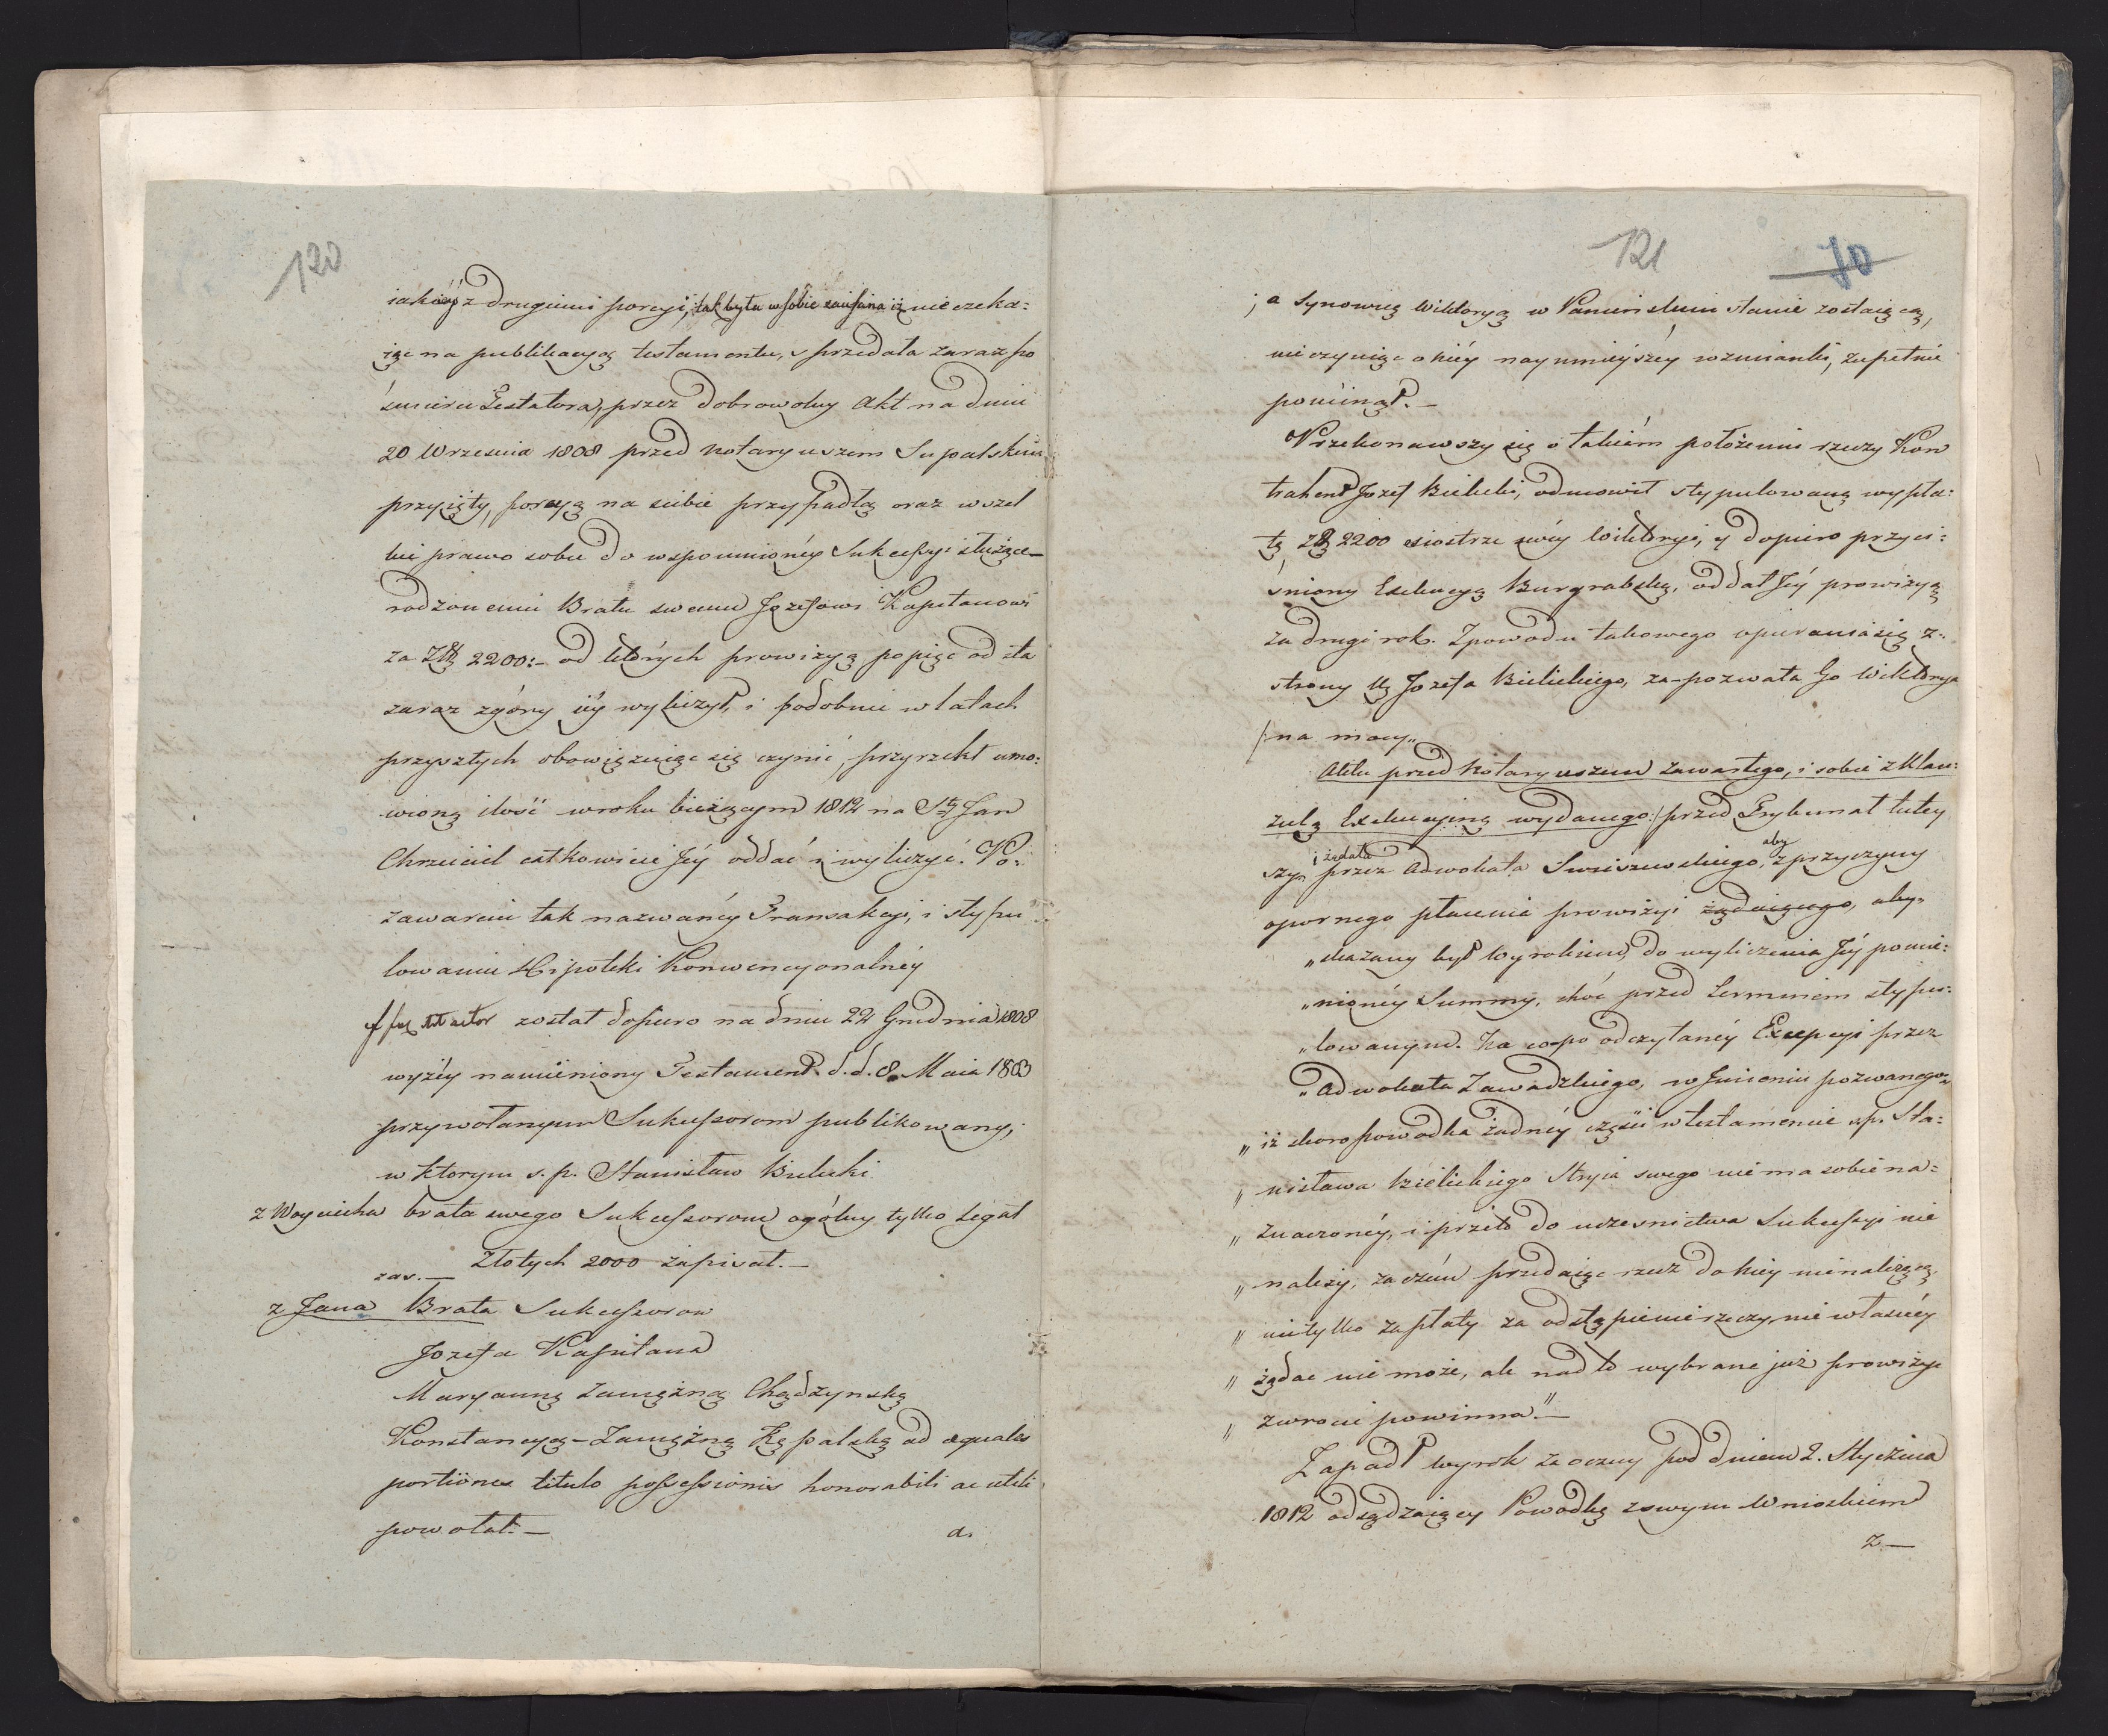 120
iakieyś z drugiemi porcyi, tak była w sobie zaufana iż nie czeka:
iąc na publikacyą testamentu, sprzedała zaraz po
śmierci Testatora, przez dobrowolny Akt na dniu
20 Września 1808 przed Notaryuszem Supalskim
przyięty, porcyą na siebie przypadłą oraz wszel
kie prawo sobie do wspomnionéy Sukcessyi służące
rodzonemu Bratu swemu Jozefowi Kapitanowi
za Złł 2200:– od których prowizyą po pięć od sta
zaraz zgóry iéy wyliczył, i podobnie w latach
przyszłych obowiązuiąc się czynić, przyrzekł umo:
wioną ilość w roku bieżącym 1812 na Sty Jan
Chrzciciel całkowicie Jéy oddać i wyliczyć. Po:
zawarciu tak nazwanéy Transakcyi, i stypu
lowaniu Hipoteki Konwencyonalnéy
został dopiero na dniu 22 Grudnia 1808
wyżéy namieniony Testament d.d. 8. Maia 1803
przywołanym Sukcessorom publikowany,
w ktorym s. p. Stanisław Bielicki
z Woyciecha brata swego Sukcessorom ogólny tylko Legat
Złotych 2000 zapisał.–
zas.–
z Jana Brata Sukcessorow
Jozefa Kapitana
Maryannę Zamężną Chądzynską
Konstancyą – Zamężną Kępalską ad aequales
portiones titulo possessionis honorabili ac utili
powołał.–
a.
121 70
; a Synowicę Wiktoryą w Panieńskim stanie zostaiącą,
nie czyniąc o niéy naymnieyszéy wzmianki, zupełnie
pominął.–
Przekonawszy się o takiém położeniu rzeczy Kon
trahent Jozef Bielicki, odmowił stypulowaną wypła:
tę Złł 2200 siostrze swéy Wiktoryi, y dopiero przyci:
śniony Exekucyą Burgrabską, oddał Jéy prowizyą
za drugi rok. Z powodu takowego opierania się z
strony Ur Jozefa Bielickiego, za-pozwała Go Wiktorya
/: na mocy
Aktu przed Notaryuszem zawartego, i sobie z Klau:
zulą Exekucyiną wydanego :/ przed Trybunał tutey
szy i żądała przez Adwokata Swiszewskiego, aby z przyczyny
opornego płacenia prowizyi żądaiącego, aby
„ skazany był Wyrokiem, do wyliczenia Jéy pomie:
„ nionéy Summy, choć przed terminem stypu:
„ lowanym. Na co po odczytanéy Excepcyi przez
„ Adwokata Zawadzkiego, w Imieniu pozwanego
„ iż skoro powodka żadnéy części w testamencie ś.p. Sta:
„ nisława Bielickiego Stryia swego nie ma sobie na:
„ znaczonéy, i przeto do uczesnictwa Sukcessyi nie
„ należy, zaczém przedaiąc rzecz do niéy nienależącą
„ nie tylko zapłaty za odstąpienie rzeczy nie własnéy
„ żądać nie może, ale nadto wybrane już prowizye
„ zwrocić powinna"–
Zapadł wyrok zaoczny pod dniem 2. Stycznia
1812 odsądzaiący Powodkę z swym Wnioskiem
z–